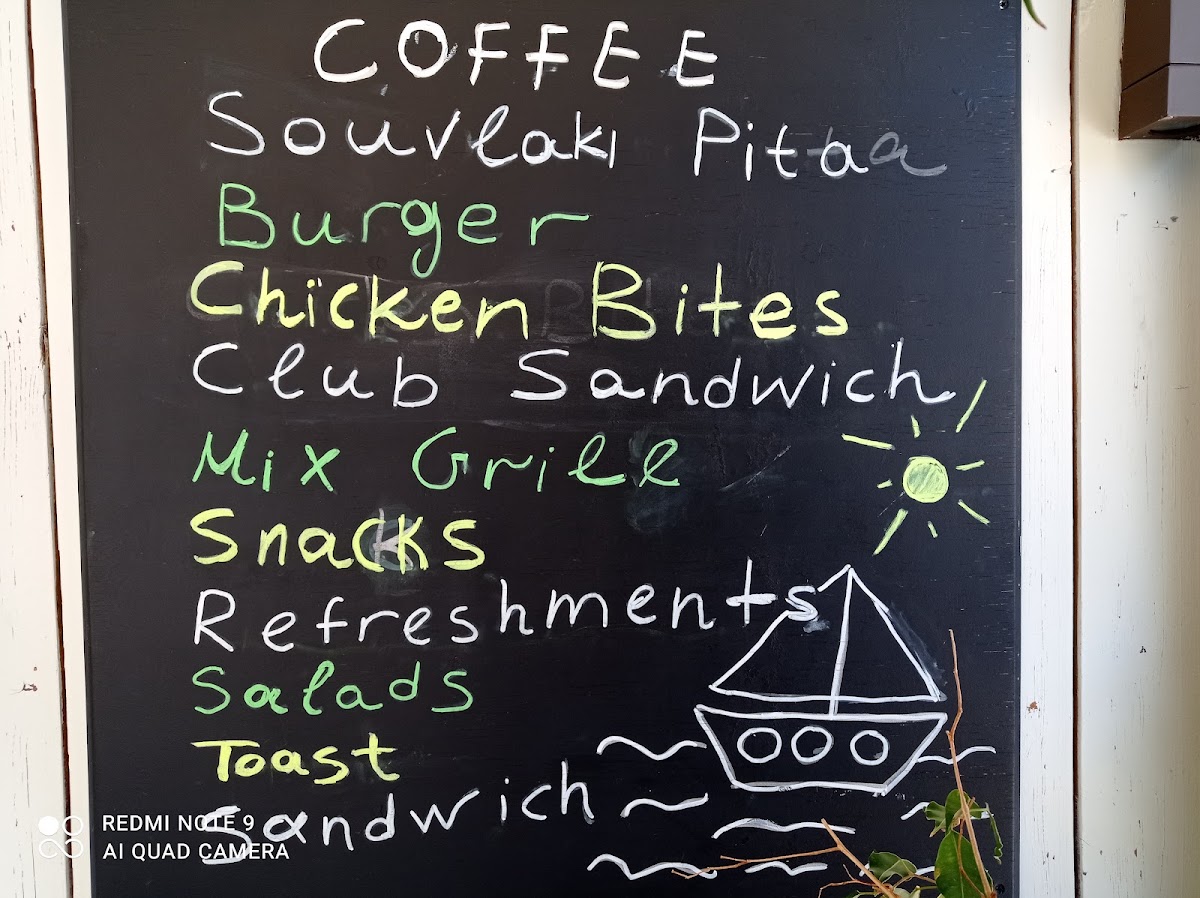 COFFEE
Souvlaki Pita
Burger
Chicken Bites
Club Sandwich
Mix Grill
Snacks
Refreshments
Salads
Toast
Sandwich
REDMI NOTE 9
AI QUAD CAMERA